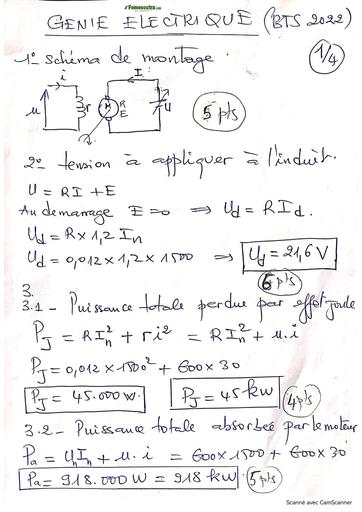 Fomesoutra.com
GENIE ELECTRIQUE (BTS 2022)
1/4
1° schéma de montage.
i I
u r M R E U
5 pts
2° tension à appliquer à l'induit.
U = RI + E
Au demarrage E = 0 ⟹ Ud = RId.
Ud = R × 1,2 In
Ud = 0,012 × 1,2 × 1500 ⟹ Ud = 21,6 V
6 pts
3.
3.1 - Puissance totale perdue par effet joule
PJ = RIn² + ri² = RIn² + u.i
PJ = 0,012 × 1500² + 600 × 30
PJ = 45.000 W. PJ = 45 kW 4 pts
3.2 - Puissance totale absorbée par le moteur
Pa = UnIn + u.i = 600 × 1500 + 600 × 30
Pa = 918.000 W = 918 kW. 5 pts
Scanné avec CamScanner